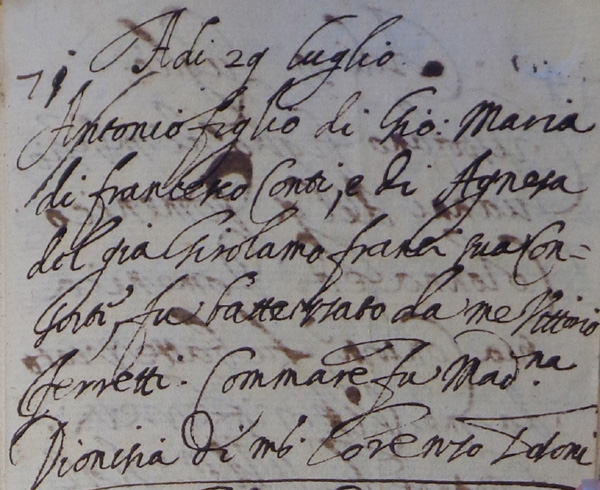 Adi 29 luglio
Antonio figlio di Gio: Maria
di francesco Conti, e di Agnesa
del gia Girolamo franci sua Con=
sorte, fu battezzato da me Vittorio
Ferretti. Commare fu Mad.na
Dionisia di mr. Lorenzo